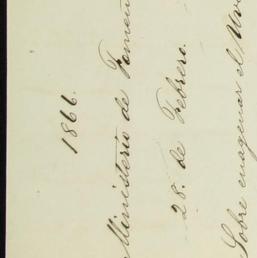 1866.
Ministerio de Fomen
28. de Febrero.
Sobre enagenar el